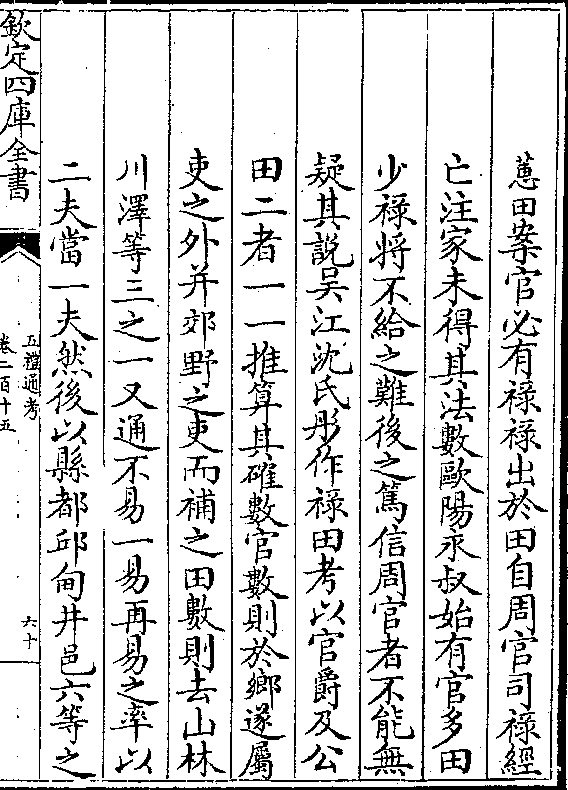 蕙田案官必有祿祿出於田自周官司祿經
亡注家未得其法數歐陽永叔始有官多田
少祿將不給之難後之篤信周官者不能無
疑其說吴江沈氏彤作祿田考以官爵及公
田二者一一推算其確數官數則於鄉遂屬
吏之外并郊野之吏而補之田數則去山林
川澤等三之一又通不易一易再易之率以
二夫當一夫然後以縣都邱甸井邑六等之
欽定四庫全書
五禮通考
卷二百十五
六十